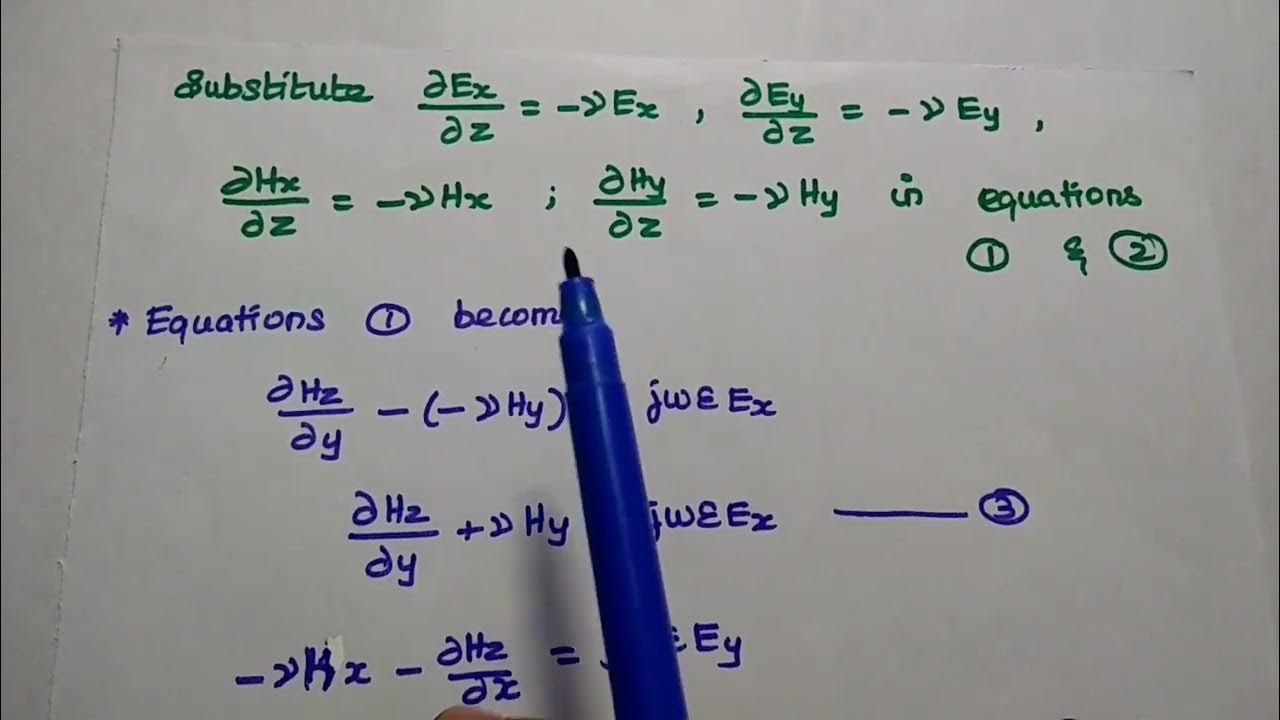 Substitute ∂Ex/∂z = -νEx , ∂Ey/∂z = -νEy ,
∂Hx/∂z = -νHx ; ∂Hy/∂z = -νHy in equations
① & ②
* Equations ① becom
∂Hz/∂y - (-νHy) jωεEx
∂Hz/∂y + νHy jωεEx —— ③
-νHx - ∂Hz/∂x = εEy